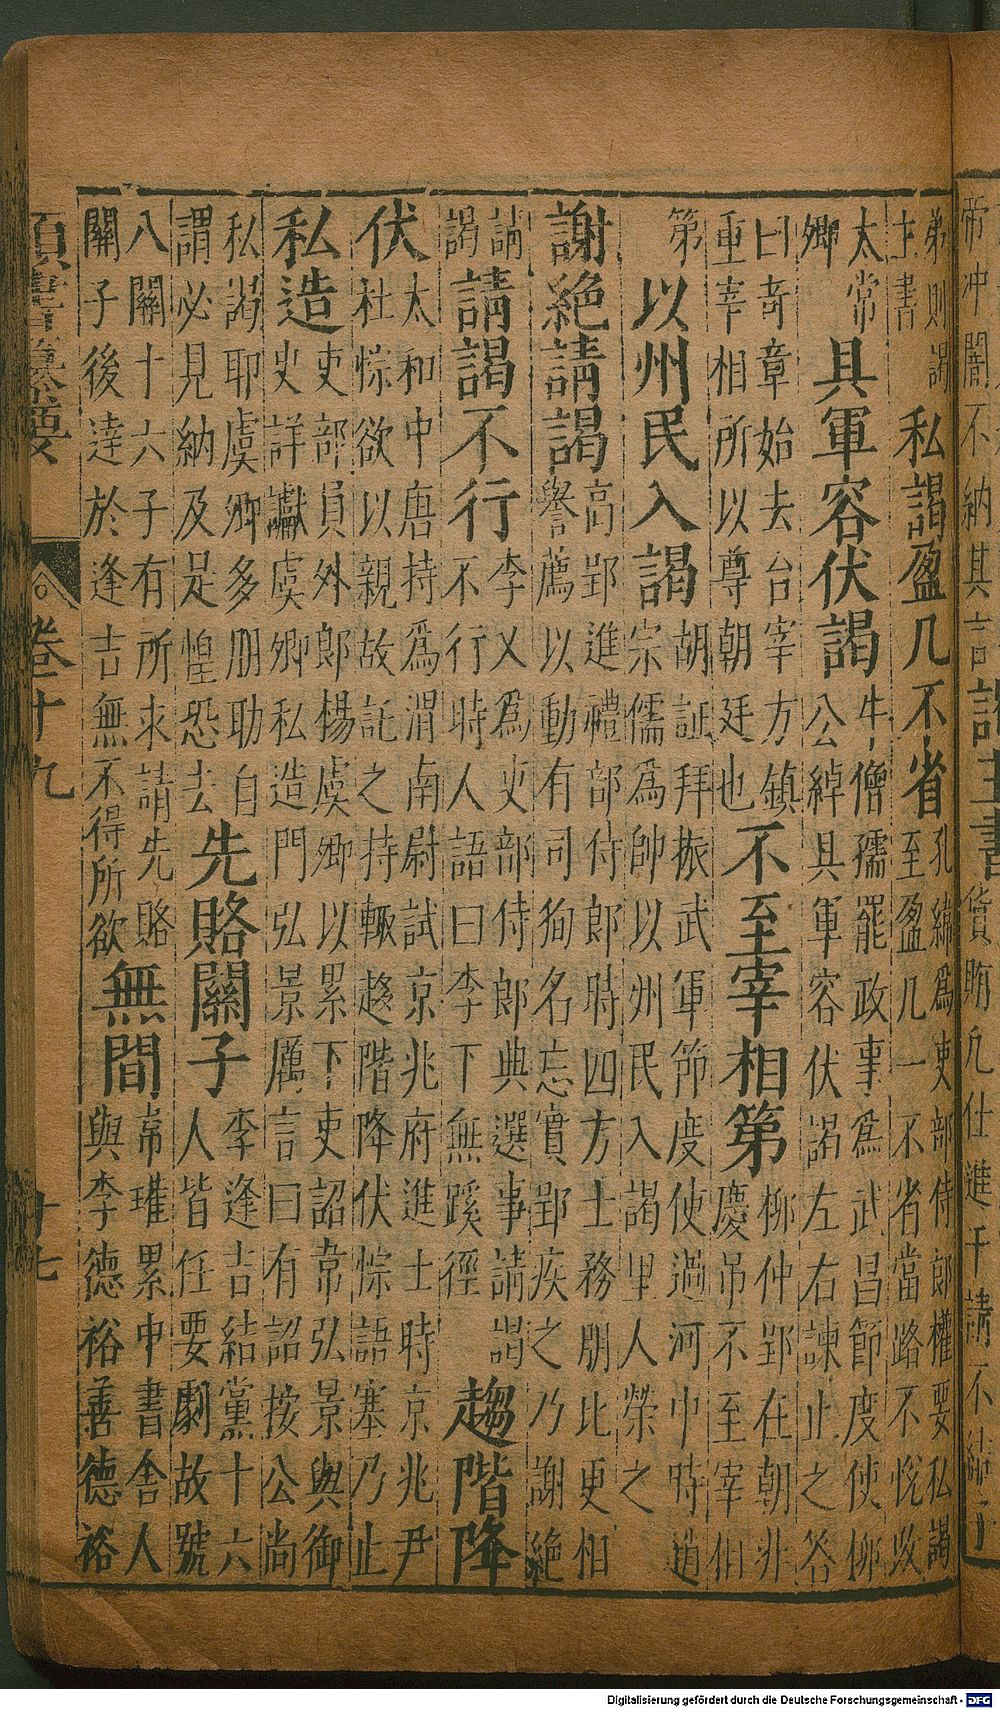 弟則謁主書私謁盈几不省孔緯為吏部侍郎權要私謁至盈几一不省當路不悅改
太常卿具軍容伏謁牛僧孺罷政事為武昌節度使柳公綽具軍容伏謁左右諫止之答
曰奇章始去台宰方鎮重宰相所以尊朝廷也不至宰相第柳仲郢在朝非慶弔不至宰相
第以州民入謁胡証拜振武軍節度使過河中時趙宗儒為帥以州民入謁里人榮之
謝絕請謁高郢進禮部侍郎時四方士務朋比更相譽薦以動有司徇名忘實郢疾之乃謝絕
請謁請謁不行李乂為吏部侍郎典選事請謁不行時人語曰李下無蹊徑趨階降
伏太和中唐持為渭南尉試京兆府進士時京兆尹杜悰欲以親故託之持輒趨階降伏悰語塞乃止
私造吏部員外郎楊虞卿以累下吏詔常弘景與御史詳讞虞卿私造門弘景厲言曰有詔按公尚
私謁耶虞卿多朋助自謂必見納及是惶恐去先賂關子李逢吉結黨十六人皆任要劇故號
八關十六子有所求請先賂關子後達於逢吉無不得所欲無間常璀累中書舍人與李德裕善德裕
類書纂要 卷十九 十七
Digitalisierung gefördert durch die Deutsche Forschungsgemeinschaft - DFG